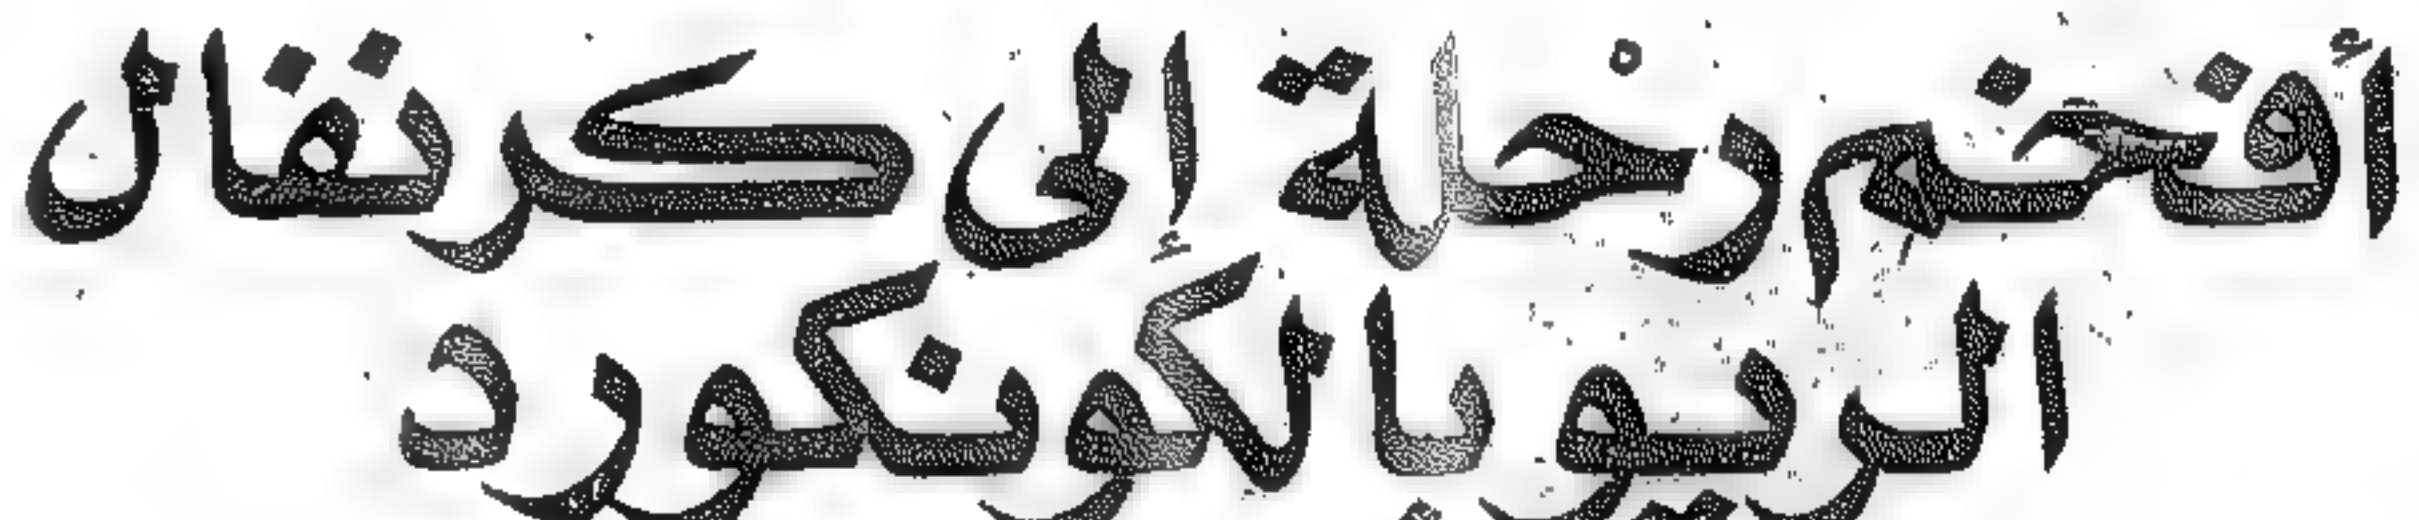 أفخم رحْلة إلى كرنفال
الريو بالكونكورد